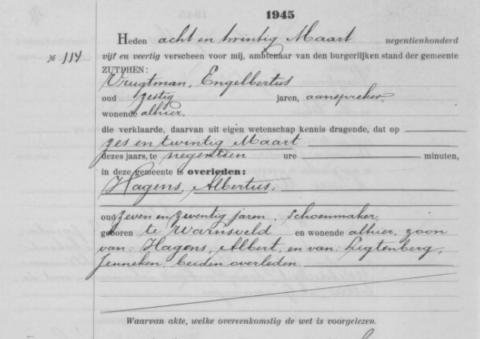 1945
Heden acht en twintig Maart negentienhonderd
№ 114
vijf en veertig verscheen voor mij, ambtenaar van den burgerlijken stand der gemeente
ZUTPHEN:
Vrugtman, Engelbertus
oud zestig jaren, aanspreker,
wonende alhier.
die verklaarde, daarvan uit eigen wetenschap kennis dragende, dat op
zes en twintig Maart
dezes jaars, te negentien ure minuten,
in deze gemeente is overleden:
Hagens, Albertus.
oud zeven en zeventig jaren, Schoenmaker,
geboren te Warnsveld en wonende alhier, zoon
van Hagens, Albert, en van Ligtenberg,
Jenneken, beiden overleden
Waarvan akte, welke overeenkomstig de wet is voorgelezen.